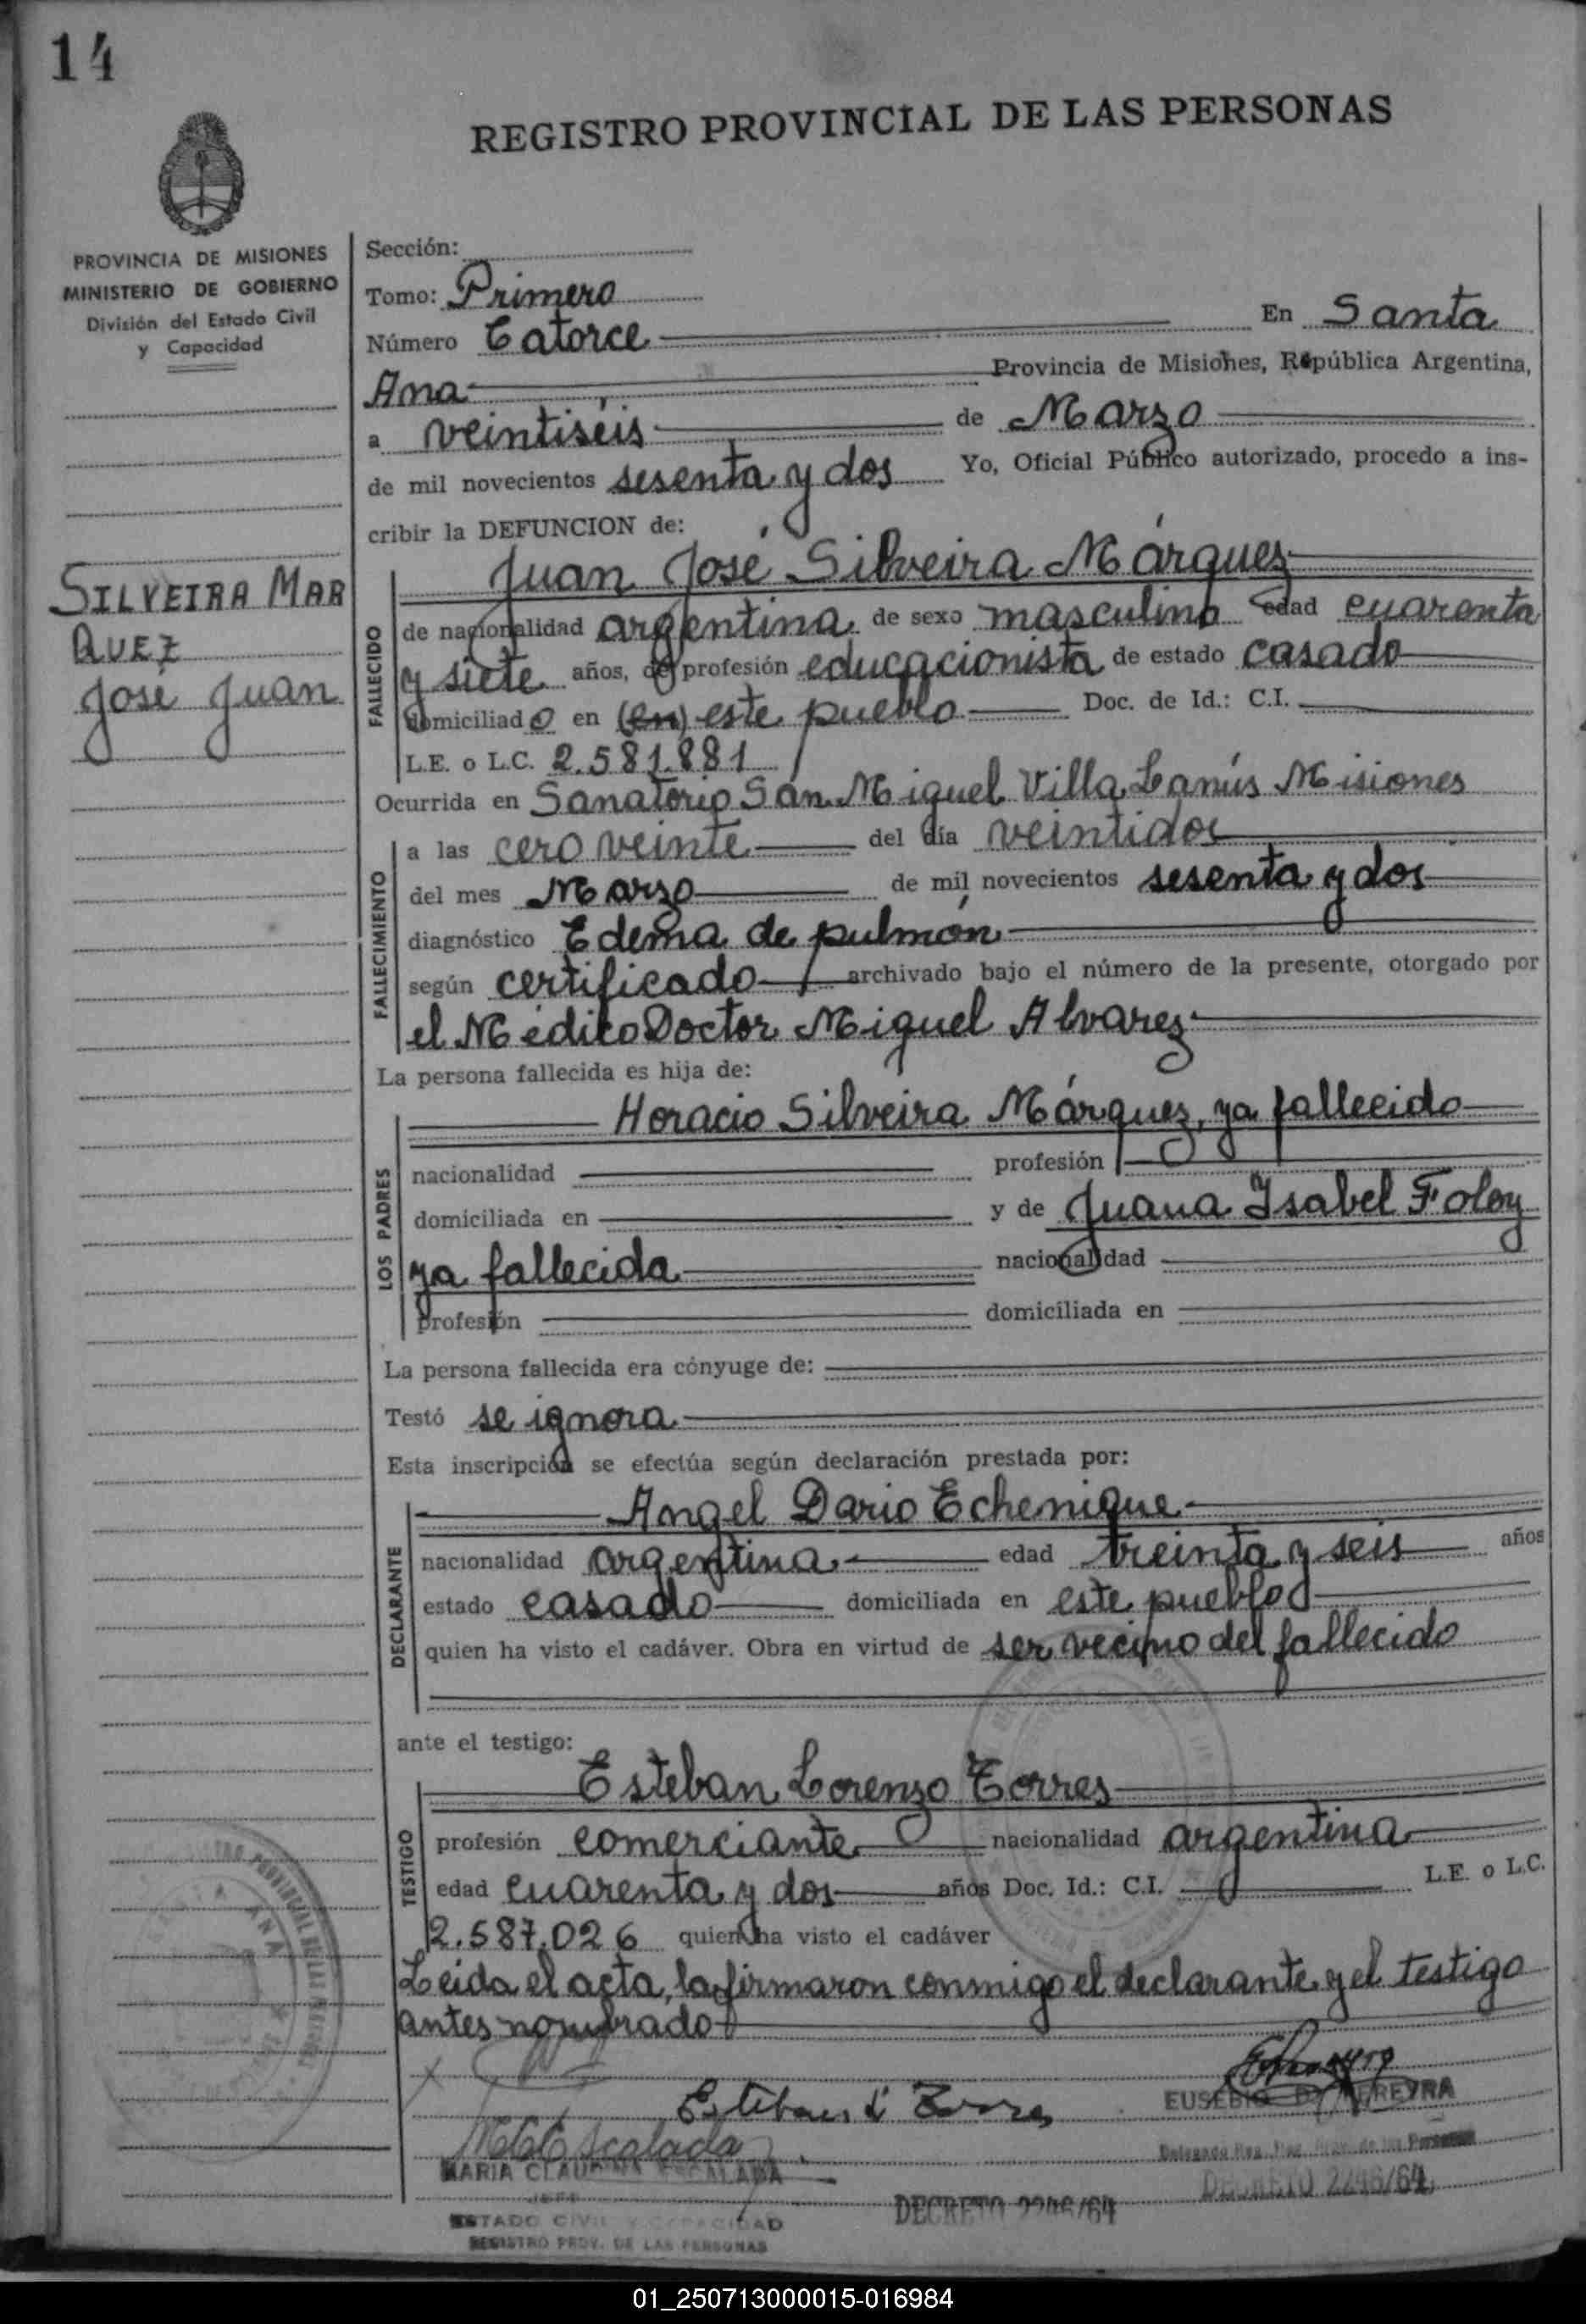 14
REGISTRO PROVINCIAL DE LAS PERSONAS
PROVINCIA DE MISIONES
MINISTERIO DE GOBIERNO
División del Estado Civil
y Capacidad
SILVEIRA MAR
QUEZ
José Juan
Sección:
Tomo: Primero
Número Catorce En Santa
Ana Provincia de Misiones, República Argentina,
a veintiséis de Marzo
de mil novecientos sesenta y dos Yo, Oficial Público autorizado, procedo a ins-
cribir la DEFUNCION de:
Juan José Silveira Márquez
FALLECIDO
de nacionalidad argentina de sexo masculino edad cuarenta
y siete años, de profesión educacionista de estado casado
domiciliado en (en) este pueblo Doc. de Id.: C.I.
L.E. o L.C. 2.581.881
Ocurrida en Sanatorio San Miguel Villa Lanús Misiones
FALLECIMIENTO
a las cero veinte del día veintidos
del mes Marzo de mil novecientos sesenta y dos
diagnóstico Edema de pulmón
según certificado archivado bajo el número de la presente, otorgado por
el Médico Doctor Miguel Alvarez
La persona fallecida es hija de:
Horacio Silveira Márquez, ya fallecido
LOS PADRES
nacionalidad profesión
domiciliada en y de Juana Isabel Foley
ya fallecida nacionalidad
profesión domiciliada en
La persona fallecida era cónyuge de:
Testó se ignora
Esta inscripción se efectúa según declaración prestada por:
Angel Dario Echenique
DECLARANTE
nacionalidad argentina edad treinta y seis años
estado casado domiciliada en este pueblo
quien ha visto el cadáver. Obra en virtud de ser vecino del fallecido
ante el testigo:
Esteban Lorenzo Torres
TESTIGO
profesión comerciante nacionalidad argentina
edad cuarenta y dos años Doc. Id.: C.I. L.E. o L.C.
2.587.026 quien ha visto el cadáver
Leida el acta, la firmaron conmigo el declarante y el testigo
antes nombrado
Esteban L Torres
EUSEBIO PEREYRA
MCEscalada
MARIA CLAUDINA ESCALADA
JEFE
ESTADO CIVIL Y CAPACIDAD
REGISTRO PROV. DE LAS PERSONAS
Delegado Reg. Prov. de las Personas
DECRETO 2246/64
DECRETO 2246/64
01_250713000015-016984